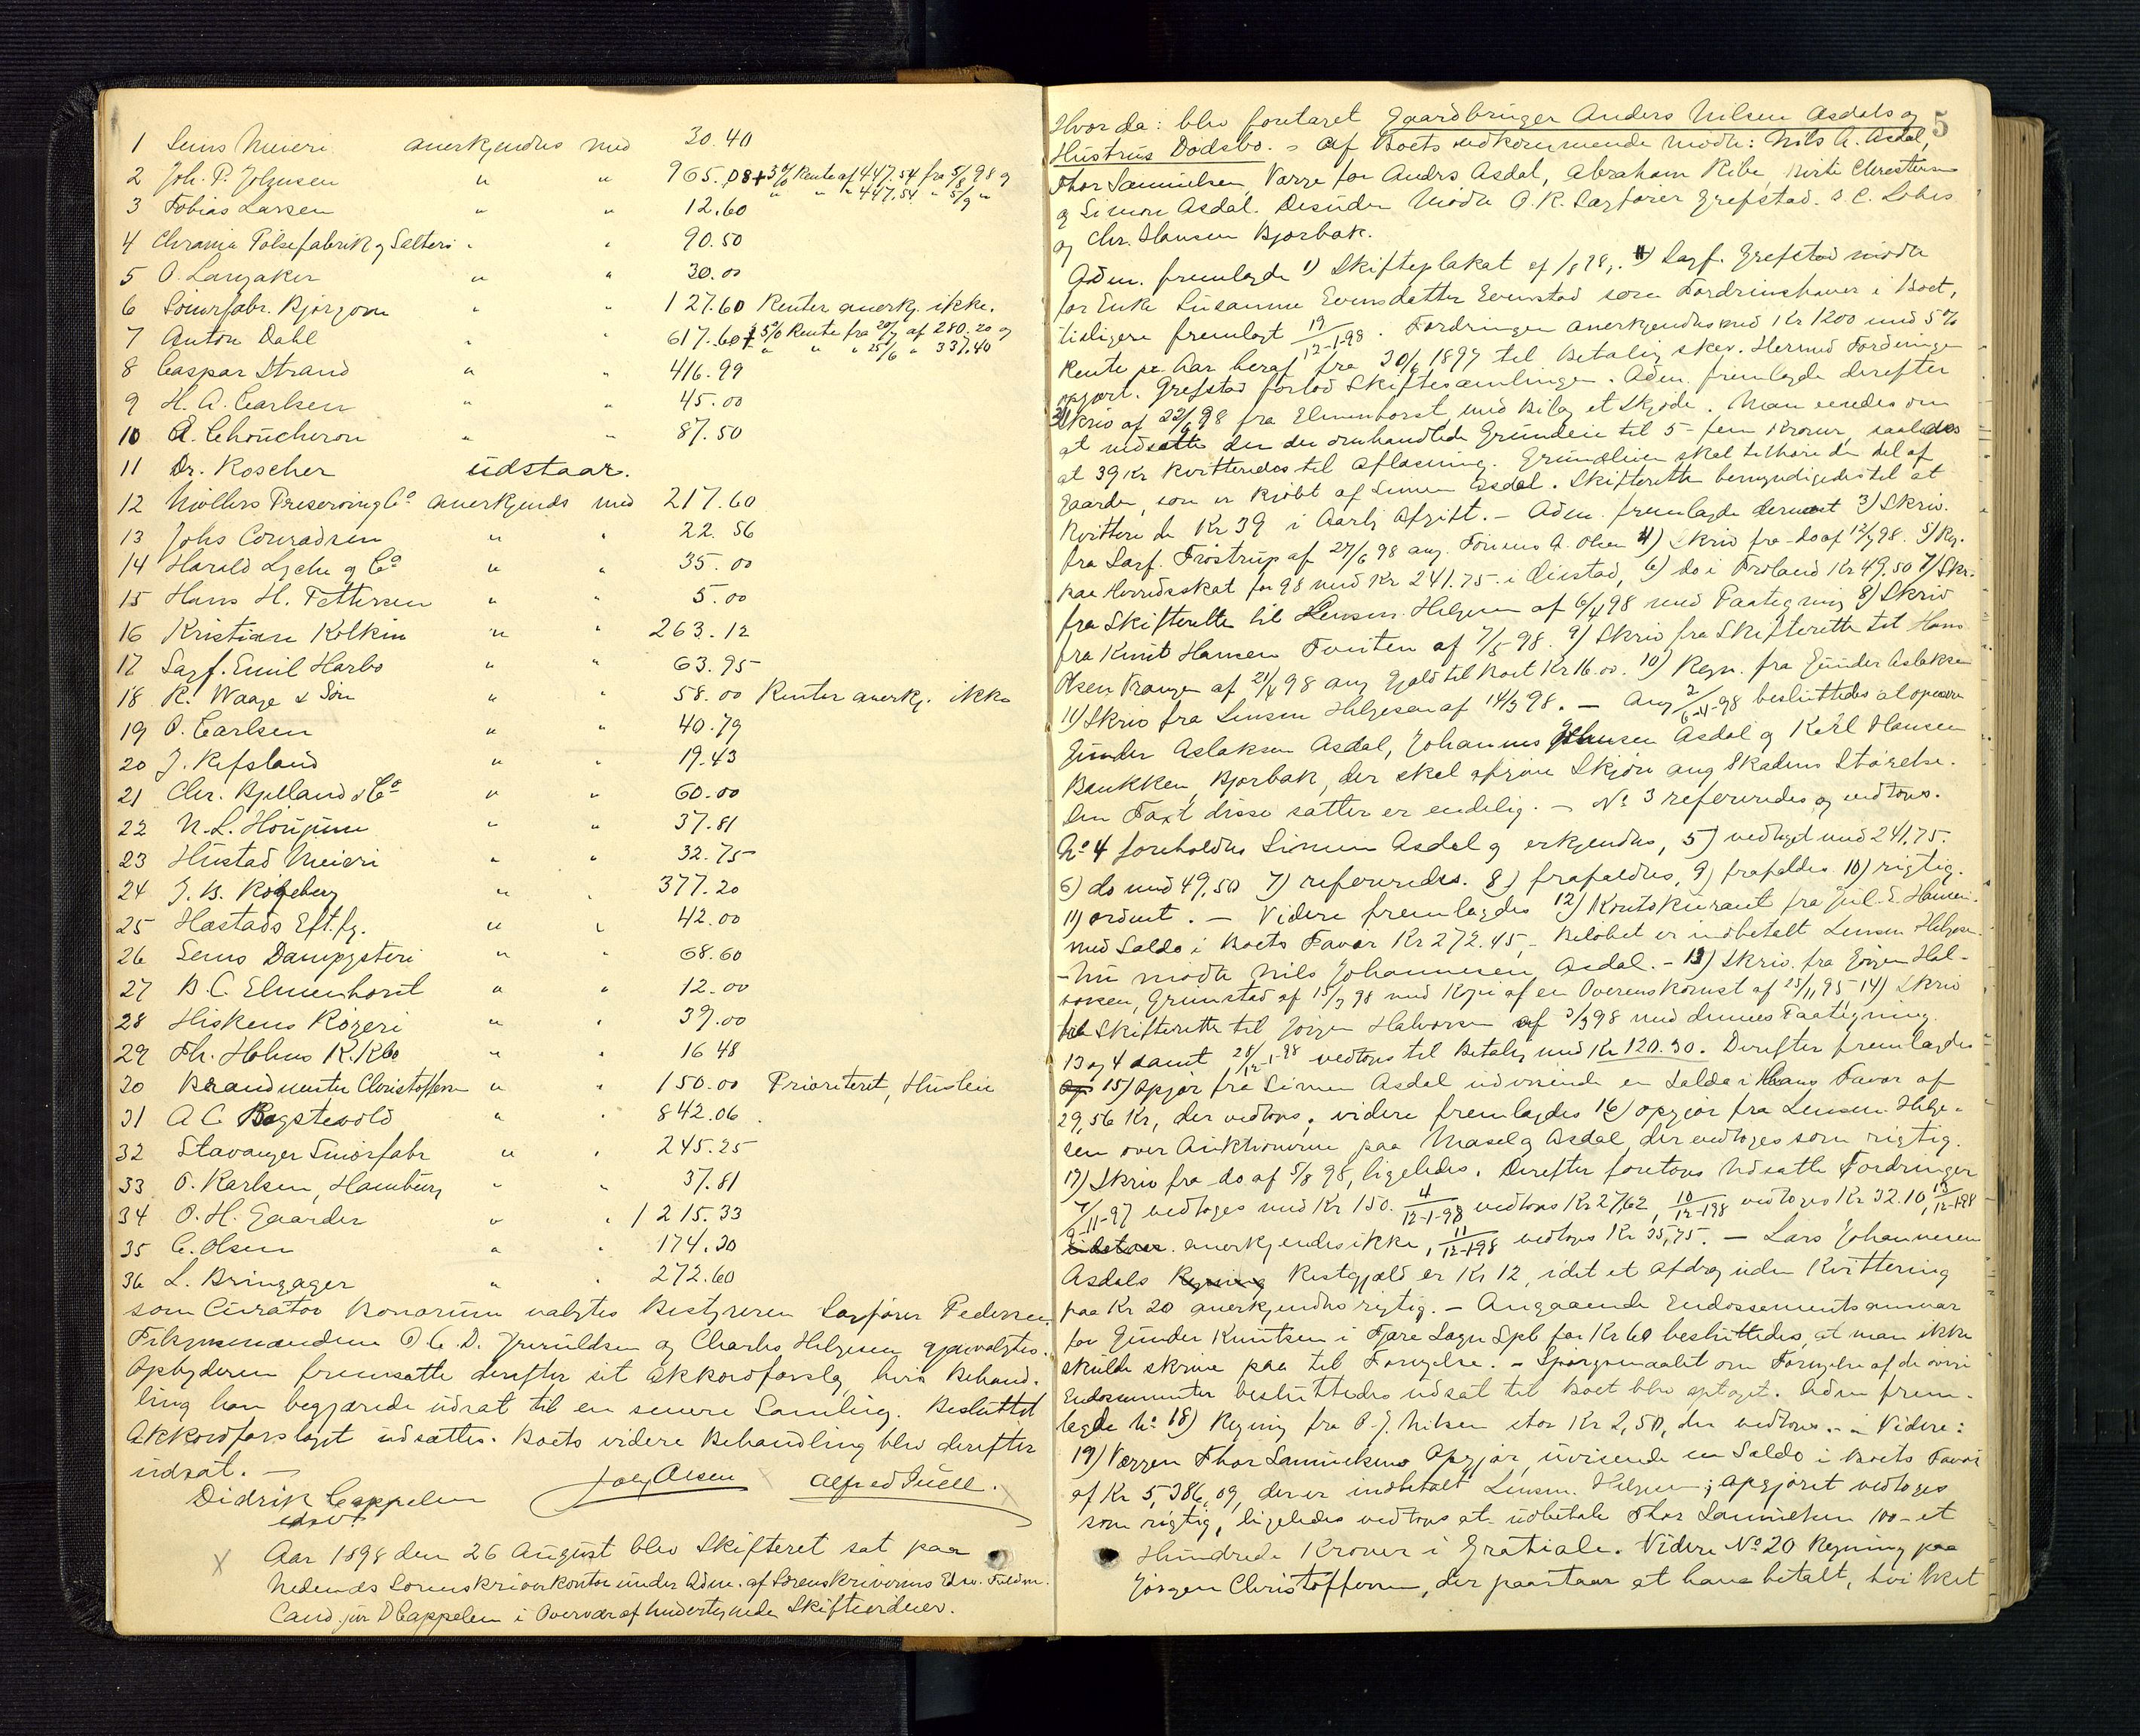 1 Sems Meieri anerkjendes med 30.40
2 Joh. P. Johnsen " " 965.08 + 5% Rente af 447.54 fra 5/8 98 og
" " " 447.54 " 5/9 "
3 Tobias Larsen " " 12.60
4 Chrania Pølsefabrik og Salteri " " 90.50
5 O. Langaker " " 30.00
6 Smørfabr. Bjørgvin " " 127.60 Renter anerkj. ikke.
7 Anton Dahl " " 617.60 + 5% Rente fra 20/7 af 280.20 og
" " " 25/6 " 337.40
8 Caspar Strand " " 416.99
9 H. A. Carlsen " " 45.00
10 A. Choucheron " " 87.50
11 Dr. Roscher udstaar.
12 Møllers Preserving Co anerkjends med 217.60
13 Johs Conradsen " " 22.56
14 Harald Lyche og Co " " 35.00
15 Hans H. Pettersen " " 5.00
16 Kristian Kolkin " " 263.12
17 Sagf. Emil Harbo " " 63.95
18 R. Waage & Søn " " 58.00 Renter anerkj. ikke
19 O. Carlsen " " 40.79
20 J. Refsland " " 19.43
21 Chr. Bjelland & Co " " 60.00
22 N. L. Houjum " " 37.81
23 Hustad Meieri " " 32.75
24 J. B. Rögeberg " " 377.20
25 Hæstads Eft.fg. " " 42.00
26 Sems Dampysteri " " 68.60
27 B. C. Elmenhorst " " 12.00
28 Hiskens Rögeri " " 39.00
29 Th. Holms K. Kbo " " 16 48
30 Brandmester Christoffersen " " 150.00 Prioriteret, Husleie
31 A C. Bogstevold " " 842.06
32 Stavanger Smörfabr " " 245.25
33 O. Karlsen, Hamburg " " 37.81
34 O. H. Gaarder " " 1215.33
35 C. Olsen " " 174.30
36 L. Bringager " " 272.60
som Curator Bonorum valgtes Bestyreren Sagfører Pedersen
Tilsynsmændene O. C. D. Jveruldsen og Charles Helgesen gjenvalgtes.
Opbyderen fremsatte derefter sit Akkordforslag, hvis Behand-
ling han begjærede udsat til en senere Samling. Besluttet
Akkordforslaget udsattes. Boets videre Behandling blev derefter
udsat. —
Didrik Cappelen Joh Olsen Alfred Juell.
edsv.
Aar 1898 den 26 August blev Skifteret sat paa
Nedenæs Sorenskriverkontor under Adm. af Sorenskriverens Edsv. Fuldm.
Cand. jur D Cappelen i Overvær af undertegnede Skiftevidner.
5
Hvor da: blev foretaget Gaardbruger Anders Nilsen Asdals og
Hustrus Dødsbo. - Af Boets vedkommende mødte: Nils A. Asdal,
Thor Samuelsen, Værge for Anders Asdal, Abraham Ribe, Birte Christensen
og Simon Asdal. Desuden Mødte O. R. Sagfører Grefstad. S. C. Løhrs
og Chr. Hansen Bjorbæk.
Adm. fremlagde 1) Skifteplakat af 1/8 98,. Sagf. Grefstad mødte
for Enke Susanne Evensdatter Evenstad som Fordringshaver i Boet,
tidligere fremlagt 19/12-1-98. Fordringen anerkjendes med Kr 1200 med 5%
Rente pr. Aar heraf fra 30/6 1897 til Betaling sker. Hermed Fordringen
opgjort. Grefstad forlod Skiftesamlingen. Adm. fremlagde derefter
2) Skriv af 22/6 98 fra Elmenhorst med Bilag et Skjøde. Man enedes om
at nedsætte den der omhandlede Grundleie til 5 - fem Kroner, saaledes
at 39 Kr kvitteredes til Aflæsning. Grundleien skal tilhøre den del af
Gaarden, som er kjøbt af Simon Asdal. Skifteretten bemyndigedes til at
kvittere de Kr 39 i Aarlig Afgift. - Adm. fremlagde dernæst 3) Skriv.
fra Sagf. Frøstrup af 27/6 98 ang. Tønnes A. Olsen 4) Skriv fra do af 12/7 98. 5) Reg.
paa Herredsskat for 98 med Kr 241.75 i Øiestad, 6) do i Froland Kr 49.50 7) Skr.
fra Skifteretten til Lensm. Helgesen af 6/4 98 med Paategning 8) Skriv
fra Knut Hansen Tveiten af 7/5 98. 9) Skriv fra Skifteretten til Hans
Olsen Vrangen af 21/4 98 ang Gjæld til Boet Kr 16.00. 10) Regn. fra Gunder Aslaksen
11) Skriv fra Lensm Helgesen af 14/3 98. - Ang 2/6-4-98 besluttedes at opnævne
Gunder Aslaksen Asdal, Johannes Johnsen Asdal og Karl Hansen
Brukken, Bjorbæk, der skal afgive Skjøn ang Skadens Størrelse.
Den Taxt disse sætter er endelig. - No 3 refereredes og vedtoges.
No 4 foreholdtes Simon Asdal og erkjendtes, 5) vedtaget med 241.75.
6) do med 49,50 7) refereredes. 8) frafaldtes, 9) frafaldtes. 10) rigtig.
11) ordnet. - Videre fremlagdes 12) Kontokurant fra Jul. E. Hansen
med Saldo i Boets Favør Kr 272.45, Beløbet er indbetalt Lensm Helgesen.
- Nu mødte Nils Johannesen Asdal. - 13) Skriv. fra Jørgen Hal-
vorsen, Grimstad af 15/7 98 med Kopi af en Overenskomst af 23/11 95 14) Skriv
fra Skifteretten til Jørgen Halvorsen af 3/3 98 med dennes Paategning.
13 og 4 samt 28/12-1-98 vedtoges til Betaling med Kr 120.30. Derefter fremlagdes
15) Opgjør fra Simon Asdal udvisende en Saldo i hans Favør af
29,56 Kr, der vedtoges, videre fremlagdes 16) opgjør fra Lensm Helge-
sen over Auktionerne paa Maselg Asdal, der vedtoges som rigtig.
17) Skriv fra do af 5/8 98, ligeledes. Derefter foretoges Udsatte Fordringer
7/11-97 vedtoges med Kr 150. 4/12-1-98 vedtoges Kr 27,62, 10/12-1-98 vedtoges Kr 32.10, 13/12-1-98
anerkjendes ikke, 11/12-1-98 vedtoges Kr 35,75. - Lars Johannesen
Asdals Restgjæld er Kr 12, idet et Afdrag uden Kvittering
paa Kr 20 anerkjendtes rigtig. - Angaaende Endossementsansvar
for Gunder Knutsen i Fjære Sogns Spb for Kr 60 besluttedes, at man ikke
skulde skrive paa til Fornyelse. - Spørgsmaalet om Fornyelse af de øvrige
Endossementer besluttedes udsat til Boet blev optaget. Adm frem-
lagde No 18) Regning fra O. J. Nilsen stor Kr 2,50, der vedtoges. - Videre:
19) Værgen Thor Samuelsens Opgjør, udvisende en Saldo i Boets Favør
af Kr 5,386,09, der er indbetalt Lensm. Helgesen; Opgjøret vedtoges
som rigtig, ligeledes vedtoges at udbetale Thor Samuelsen 100 - et
Hundrede Kroner i Gratiale. Videre No 20 Regning paa
Jørgen Christoffersen, der paastaar at have betalt, hvilket